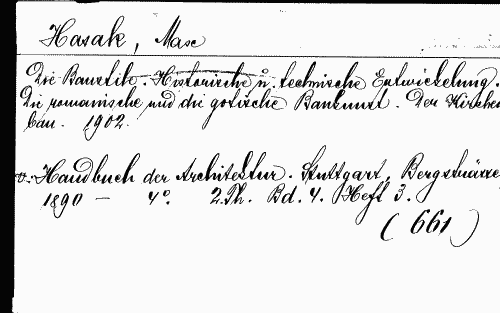 Hasak, Max
Die Baustile. Historische u. technische Entwickelung.
Die romanische und die gotische Baukunst. Der Kirchen
bau. 1902.
v. Handbuch der Architektur. Stuttgart, Bergsträsse
1890 — 4°. 2.Th. Bd. 4. Heft 3.
(661)